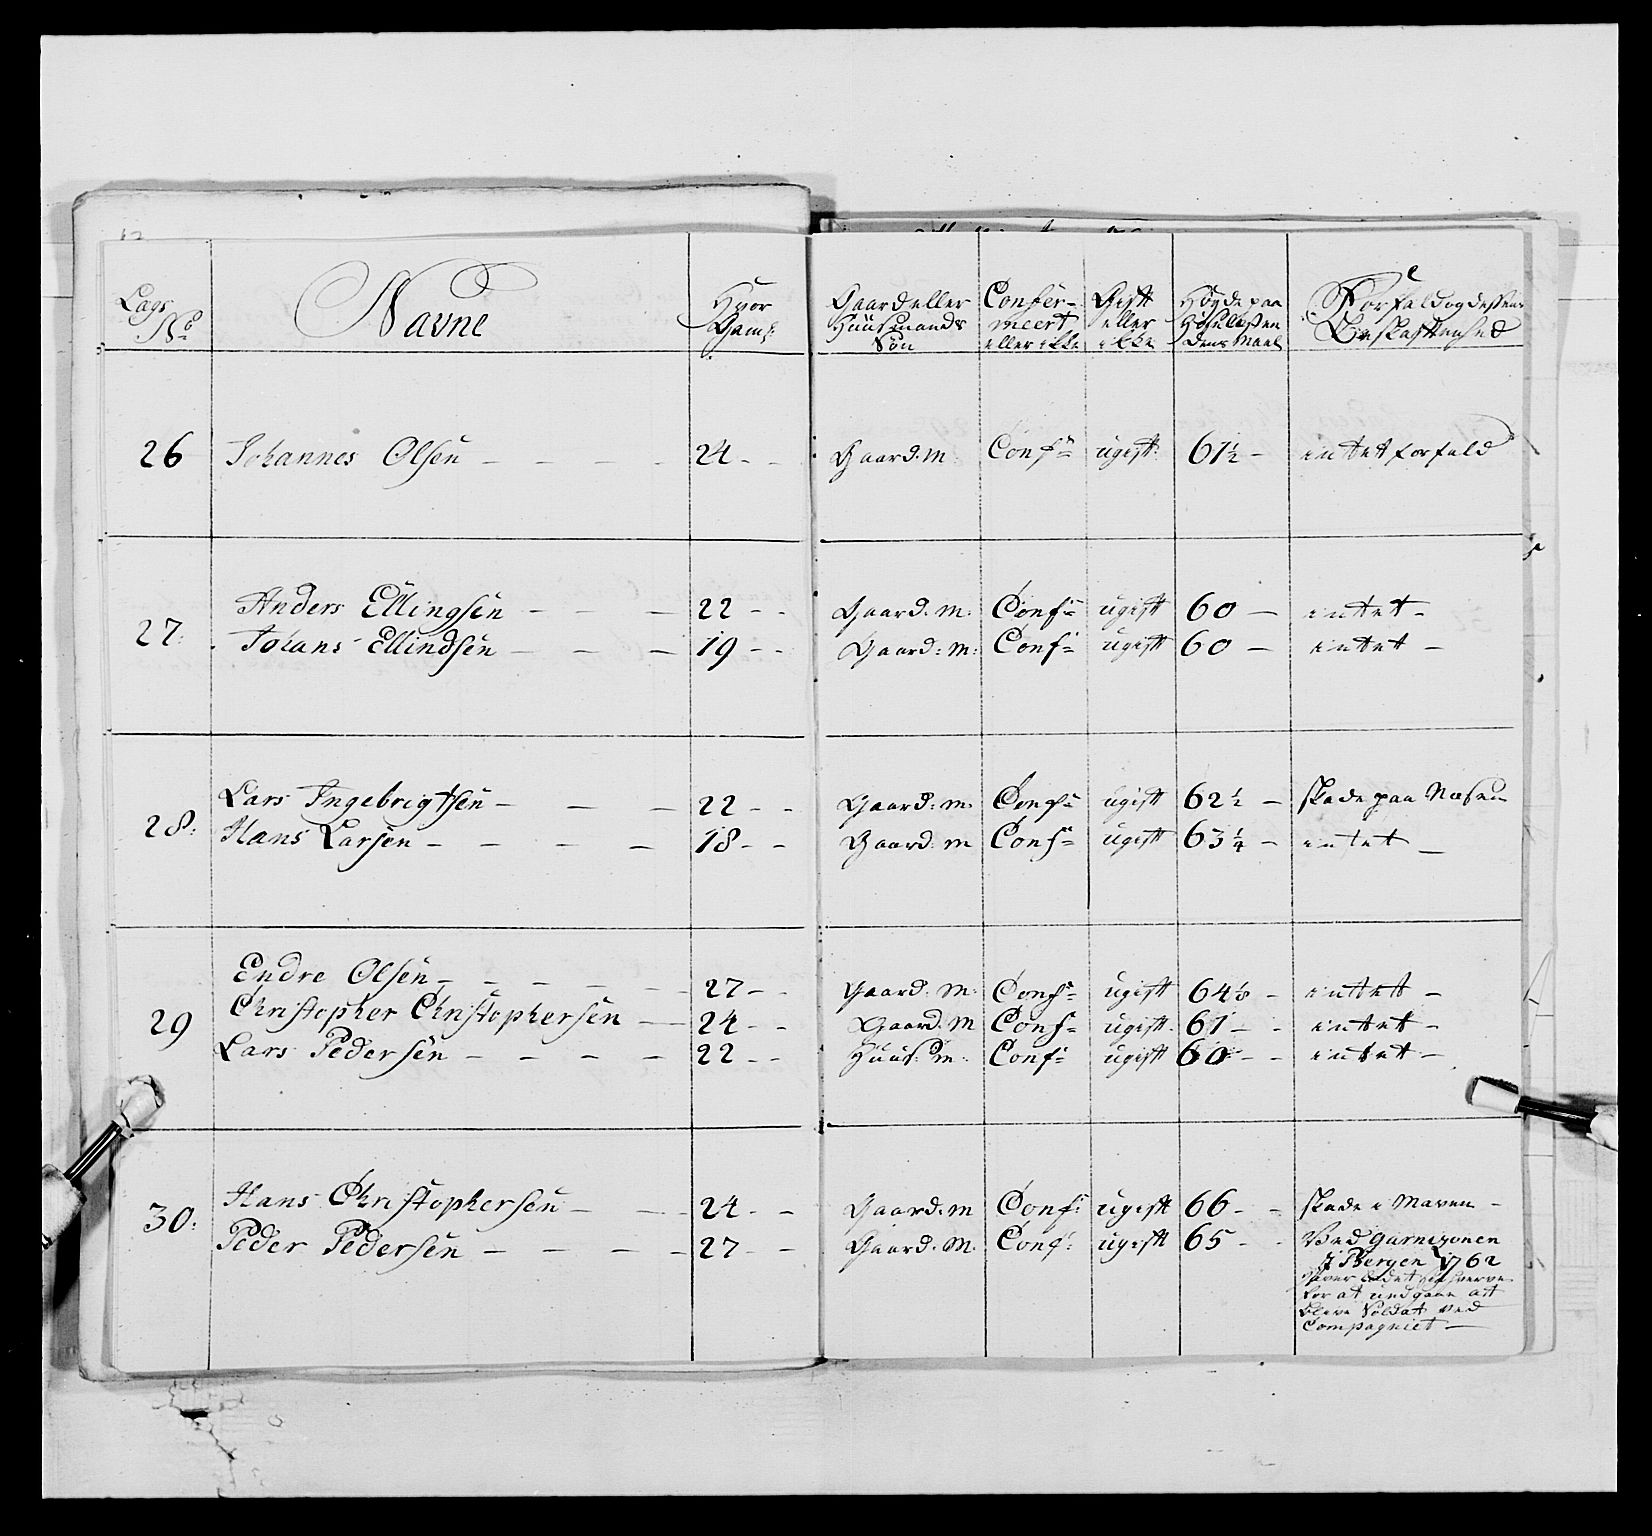 Lags No Navne Hvor Gaml: Gaard eller Huusmands Søn Confer-meert eller ikke Gift eller ikke Høyde paa Høyelesten dens Maal Forfald og dessens Beskaffenhed
26 Johannes Olsen - - - - 24 - - Gaard: m: Conf: ugift: 61½ - intet forfald
27: Anders Ellingsen - - - 22 - - Gaard: m: Conf: ugift 60 - intet -
Johans Ellindsen - - - 19 - - Gaard: m: Conf: ugift 60 - intet -
28: Lars Ingebrigtsen - - - 22 - - Gaard: m: Conf: ugift 62½ - skade paa Næsen
Hans Larsen - - - - 18 - - Gaard: m Conf: ugift 63¼ - intet -
29 Endre Olsen - - - - - - 27 - - Gaard: m: Conf: ugift 64⅛ - intet -
Christopher Christophersen - - 24 - - Gaard: m Conf: ugift: 61 - - intet -
Lars Pedersen - - - - 22 - - Huus: m: Conf: ugift 60 - - intet -
30: Hans Christophersen - - - 24 - - Gaard: m Conf: ugift 66 - - skade i Maven -
Peder Pedersen - - - - 27 - - Gaard: M: Conf: ugift 65 - - Ved Garnizonen
i Bergen 1762
ladet sig hverve
for at undgaae att
bleve Soldat ved
Compagniet -